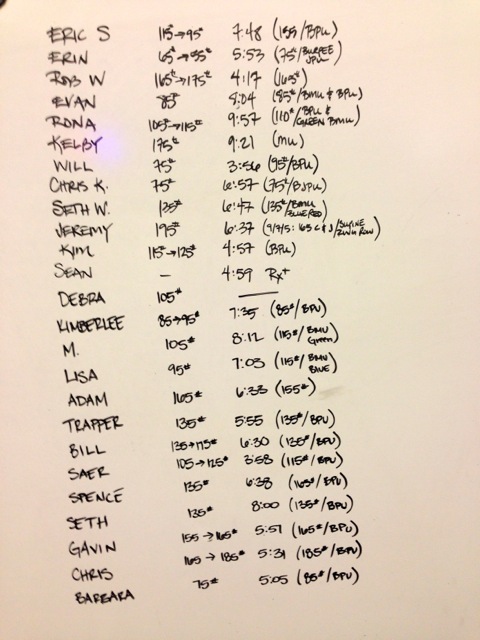 ERIC S 115# → 95# 7:48 (155/BPU)
ERIN 65# → 55# 5:53 (75#/BURPEE JPU)
ROB W 165# → 175# 4:17 (165#)
EVAN 85# 8:04 (85#/BMU & BPU)
RONA 105# → 115# 9:57 (110#/BPU & GREEN BMU)
KELBY 175# 9:21 (MU)
WILL 75# 3:56 (95#/BPU)
CHRIS K. 75# 6:57 (75#/BJPU)
SETH W. 135# 6:47 (135#/BMU BLUE RED)
JEREMY 195# 6:37 (9/7/5: 165 C & J/SUPINE RING ROW)
KIM 115# → 125# 4:57 (BPU)
SEAN — 4:59 Rx+
DEBRA 105# —
KIMBERLEE 85 → 95# 7:35 (85#/BPU)
M. 105# 8:12 (115#/BMU Green)
LISA 95# 7:03 (115#/BMU BLUE)
ADAM 165# 6:33 (155#)
TRAPPER 135# 5:55 (135#/BPU)
BILL 135 → 175# 6:30 (135#/BPU)
SAER 105 → 125# 3:58 (115#/BPU)
SPENCE 135# 6:38 (165#/BPU)
SETH 135# 8:00 (135#/BPU)
GAVIN 155 → 165# 5:51 (165#/BPU)
CHRIS 165 → 185# 5:31 (185#/BPU)
BARBARA 75# 5:05 (85#/BPU)